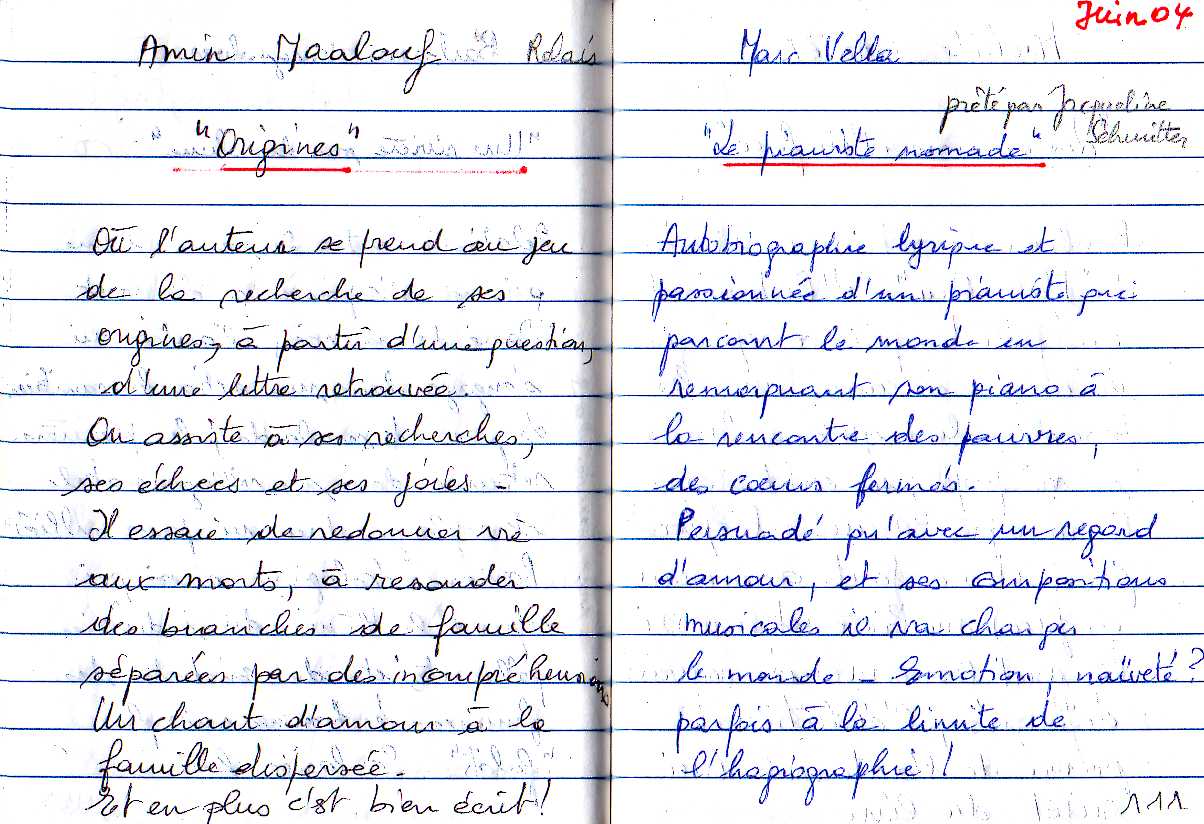 Amin Maalouf Relais
"Origines"
Où l'auteur se prend au jeu
de la recherche de ses
origines, à partir d'une question,
d'une lettre retrouvée.
On assiste à ses recherches,
ses échecs et ses joies -
Il essaie de redonner vie
aux morts, à ressouder
des branches de famille
séparées par des incompréhensions
Un chant d'amour à la
famille dispersée.
Et en plus c'est bien écrit !
Juin 04
Marc Vella
prêté par Jacqueline
Schmitter
"Le pianiste nomade"
Autobiographie lyrique et
passionnée d'un pianiste qui
parcourt le monde en
remorquant son piano à
la rencontre des pauvres,
des coeurs fermés.
Persuadé qu'avec un regard
d'amour, et ses compositions
musicales il va changer
le monde - Emotion, naïveté ?
parfois à la limite de
l'hagiographie !
111